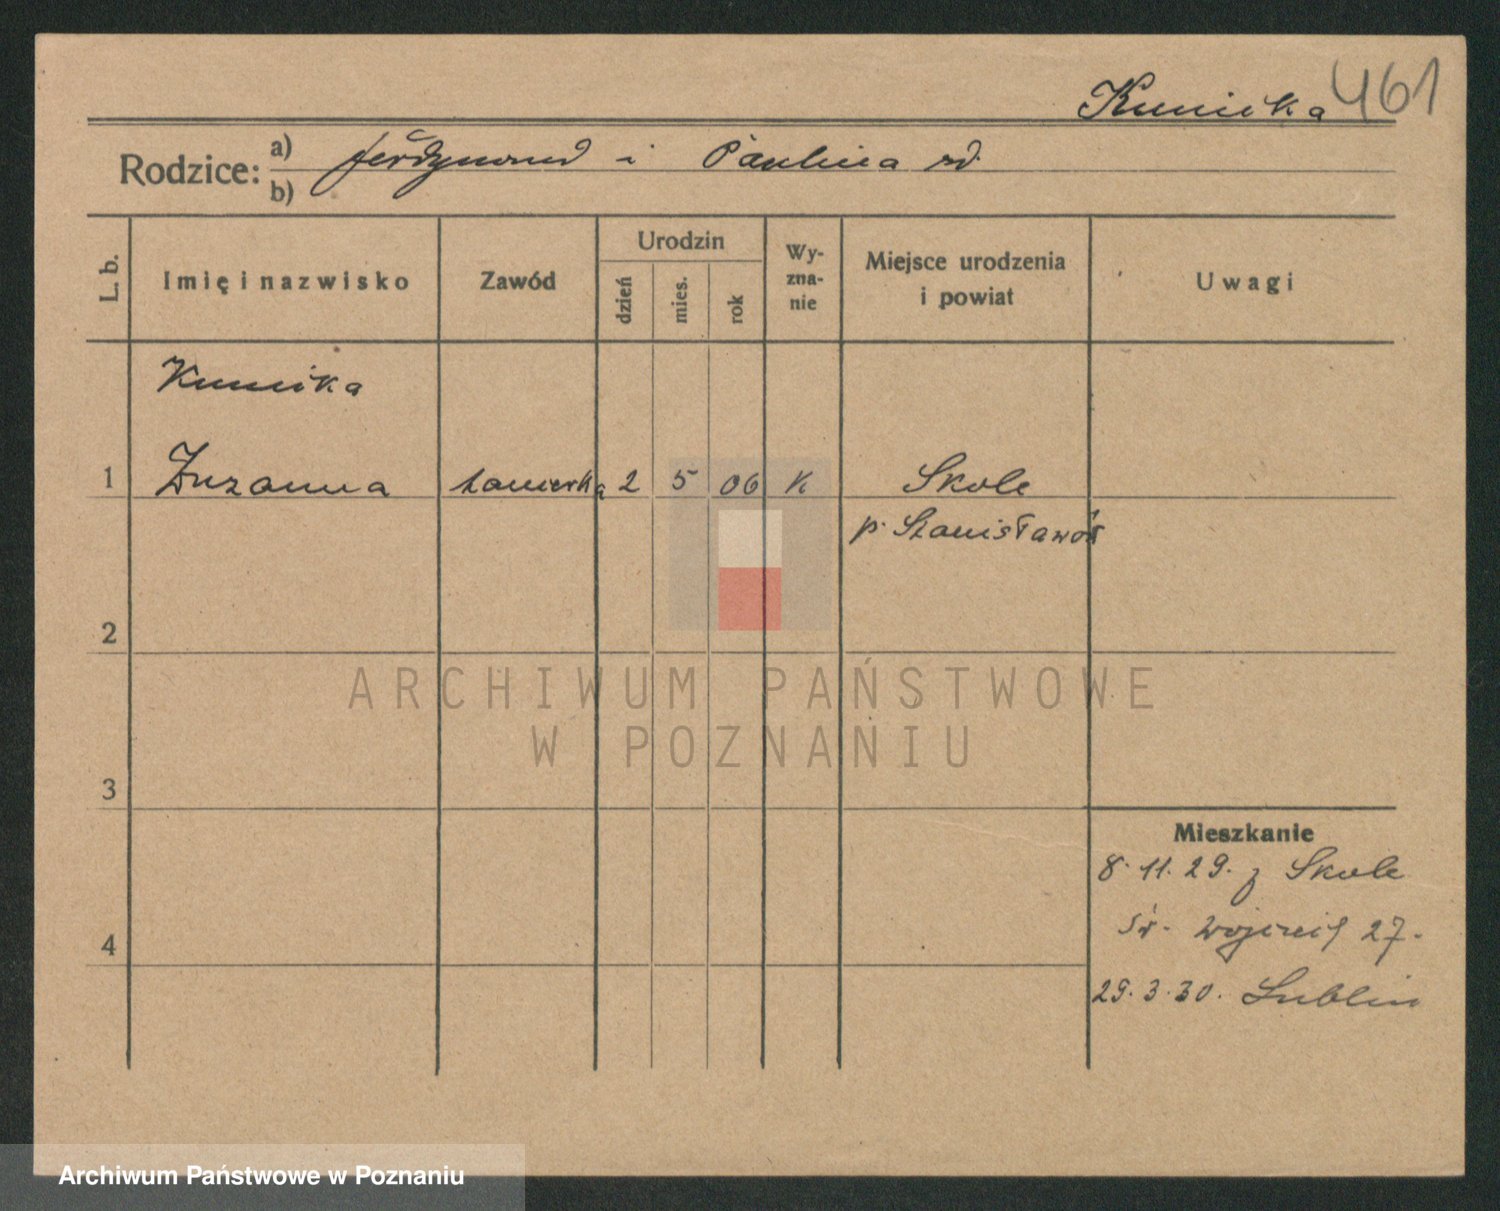 Kunicka 461
Rodzice: a) Ferdynand i Paulina rd.
b)
L. b. Imię i nazwisko Zawód Urodzin dzień mies. rok Wy-zna-nie Miejsce urodzenia i powiat Uwagi
Kunicka
1 Zuzanna 2 5 06 K Skole
p. Stanisławów
2
ARCHIWUM PAŃSTWOWE
W POZNANIU
3
Mieszkanie
8. 11. 29. z Skole
4 św. Wojciech 27.
29. 3. 30. Lublin
Archiwum Państwowe w Poznaniu